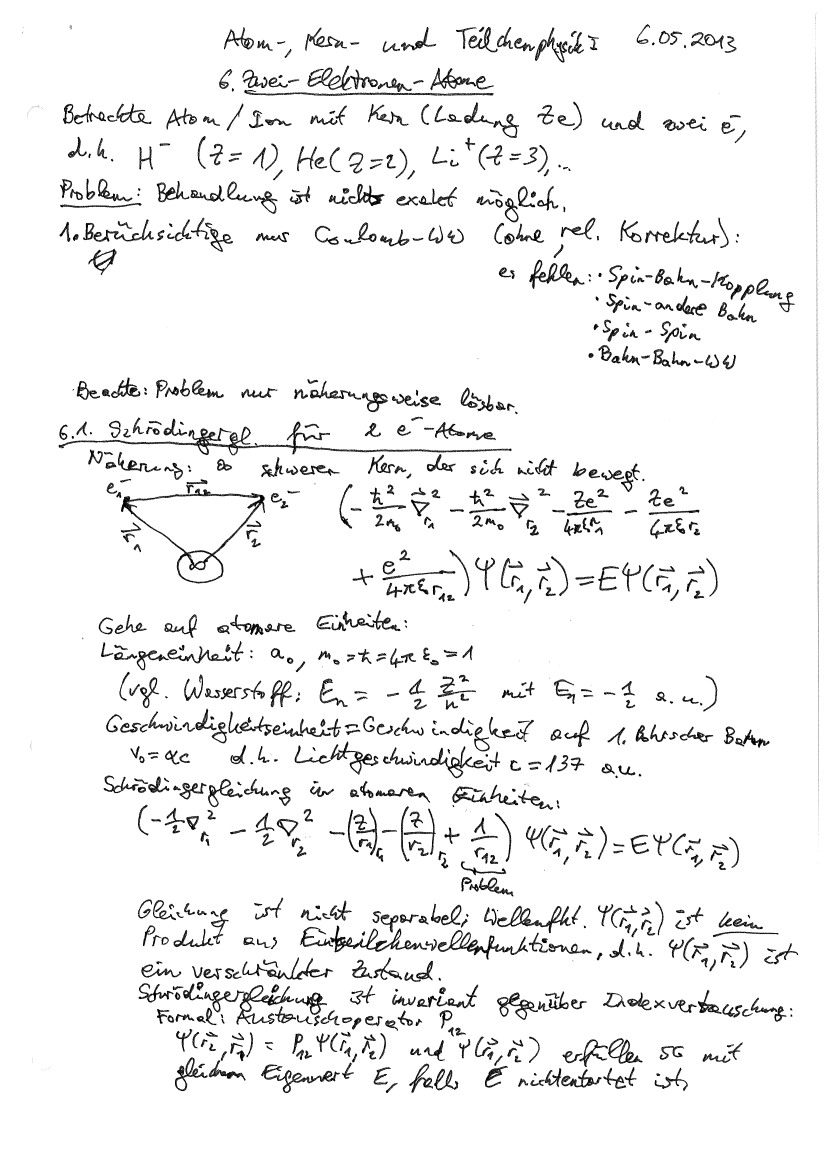 Atom-, Kern- und Teilchenphysik I 6.05.2013
6. Zwei-Elektronen-Atome
Betrachte Atom/Ion mit Kern (Ladung Ze) und zwei e⁻,
d.h. H⁻ (Z=1), He(Z=2), Li⁺(Z=3),..
Problem: Behandlung ist nicht exakt möglich.
1. Berücksichtige nur Coulomb-WW (ohne rel. Korrektur):
es fehlen: • Spin-Bahn-Kopplung
• Spin-andere Bahn
• Spin-Spin
• Bahn-Bahn-WW
Beachte: Problem nur näherungsweise lösbar.
6.1. Schrödingergl. für 2 e⁻-Atome
Näherung: ∞ schweren Kern, der sich nicht bewegt.
e₁⁻ r⃗₁₂ e₂⁻
r⃗₁ r⃗₂
(-ħ²/2m₀ ∇⃗²_r₁ - ħ²/2m₀ ∇⃗²_r₂ - Ze²/4πε₀r₁ - Ze²/4πε₀r₂
+ e²/4πε₀r₁₂) Ψ(r⃗₁, r⃗₂) = EΨ(r⃗₁, r⃗₂)
Gehe auf atomare Einheiten:
Längeneinheit: a₀, m₀=ħ=4πε₀=1
(vgl. Wasserstoff: Eₙ = -1/2 Z²/n² mit E₁ = -1/2 a.u.)
Geschwindigkeitseinheit=Geschwindigkeit auf 1. Bohrscher Bahn
v₀=αc d.h. Lichtgeschwindigkeit c=137 a.u.
Schrödingergleichung in atomaren Einheiten:
(-1/2 ∇²_r₁ - 1/2 ∇²_r₂ - (Z/r₁)_r₁ - (Z/r₂)_r₂ + 1/r₁₂) Ψ(r⃗₁, r⃗₂) = EΨ(r⃗₁, r⃗₂)
Problem
Gleichung ist nicht separabel; Wellenfkt. Ψ(r⃗₁, r⃗₂) ist kein
Produkt aus Einteilchenwellenfunktionen, d.h. Ψ(r⃗₁, r⃗₂) ist
ein verschränkter Zustand.
Schrödingergleichung ist invariant gegenüber Indexvertauschung:
Formal: Austauschoperator P₁₂
Ψ(r⃗₂, r⃗₁) = P₁₂Ψ(r⃗₁, r⃗₂) und Ψ(r⃗₁, r⃗₂) erfüllen SG mit
gleichem Eigenwert E, falls E nichtentartet ist,